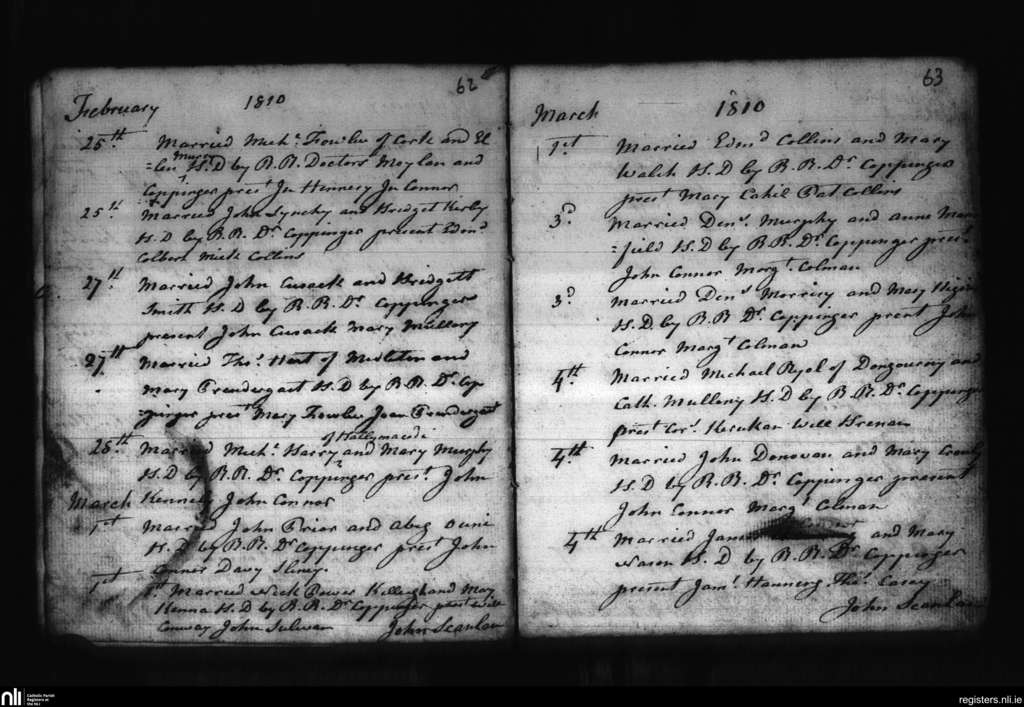 62
February 1810
25th Married Mich. Fowlue of Cork and El
=len H.D by R.R. Doctors Moylan and
Coppinger prest Jn Hinnery Jn Connor
25th Married John Lynchy and Bridget Kirby
H.D by R.R. Dr Coppinger present Edmd
Colbert Mick Collins
27th Married John Cusack and Bridgett
Smith H.D by R.R. Dr Coppinger
present John Cusack Mary Mullery
27th Married Thos Hart of Midleton and
Mary Prendergast H.D by R.R. Dr Cop
=pinger prest Mary Fowlue Joan Prendergast
of Ballymacodi
28th Married Mich. Barry and Mary Murphy
H.D by R.R. Dr Coppinger prest John
March Kennely John Connor
1st Married John Prior and
H.D by R.R. Dr Coppinger prest John
Connor Davy Sliney.
1st Married Nick Power Killeagh and
Kenna H.D by R.R. Dr Coppinger prest Will
Conway John Sulivan John Scanlan
63
March 1810
1st Married Edmd Collins and Mary
Walsh H.D by R.R. Dr Coppinger
prest Mary Cahil Pat Collins
3d Married Dens Murphy and anne Man
=field H.D by R.R. Dr Coppinger prest
John Connor Margt Colman
3d Married Dens Morrisy and Mary
H.D. by R.R. Dr Coppinger prent John
Connor Margt Colman
4th Married Michael Ryol of Dongourny and
Cath. Mullony H.D by R.R. Dr Coppinger
prest Will Brenan
4th Married John Donovan and Mary
H.D by R.R. Dr Coppinger present
John Connor Margt Colman
4th Married James and Mary
H.D by R.R. Dr Coppinger
present Jams Hannery Ths Casey
John Scanlan
nli
Catholic Parish
Registers at
the NLI
registers.nli.ie